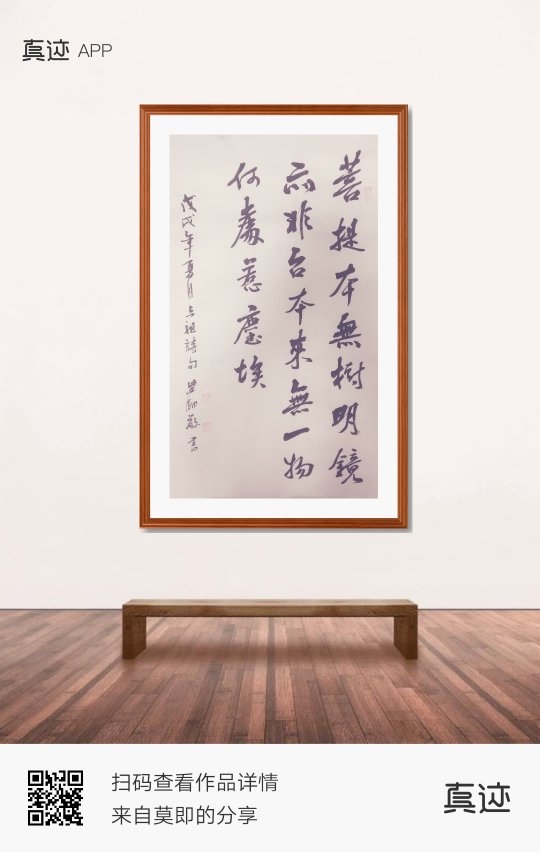 真迹 APP
菩提本無樹明鏡
亦非台本來無一物
何處惹塵埃
戊戌年夏月 祖詩句 書
扫码查看作品详情
来自莫即的分享
真迹